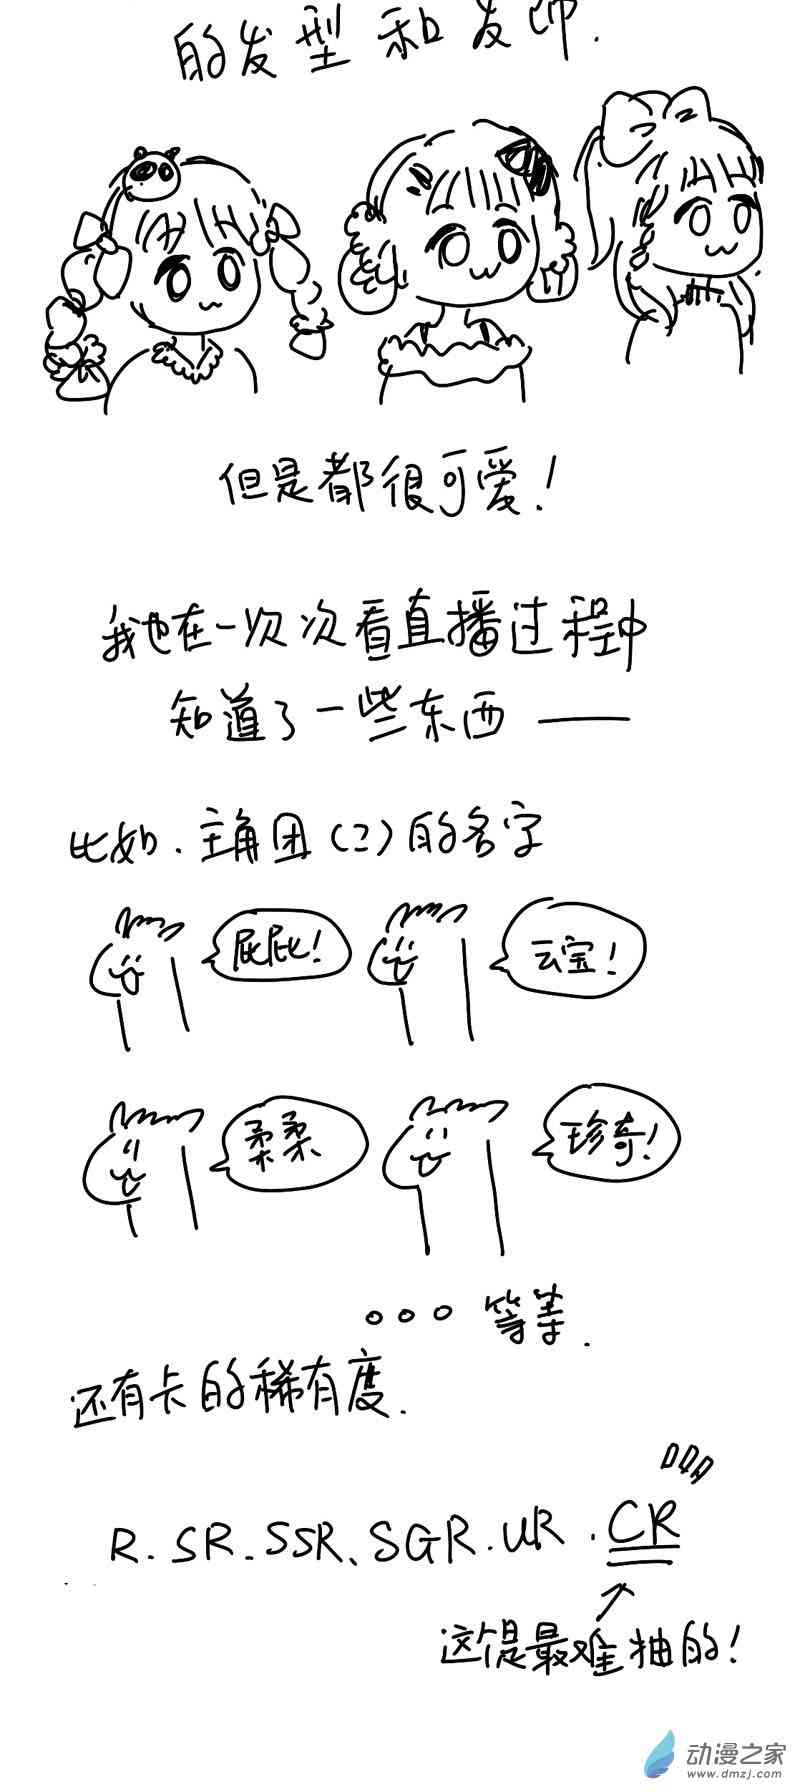 的发型和发饰.
但是都很可爱!
我也在一次次看直播过程中
知道了一些东西——
比如.主角团(?)的名字
屁屁!
云宝!
柔柔
珍奇!
。。。等等.
还有卡的稀有度.
R.SR.SSR、SGR.UR.CR
这个是最难抽的!
动漫之家
www.dmzj.com